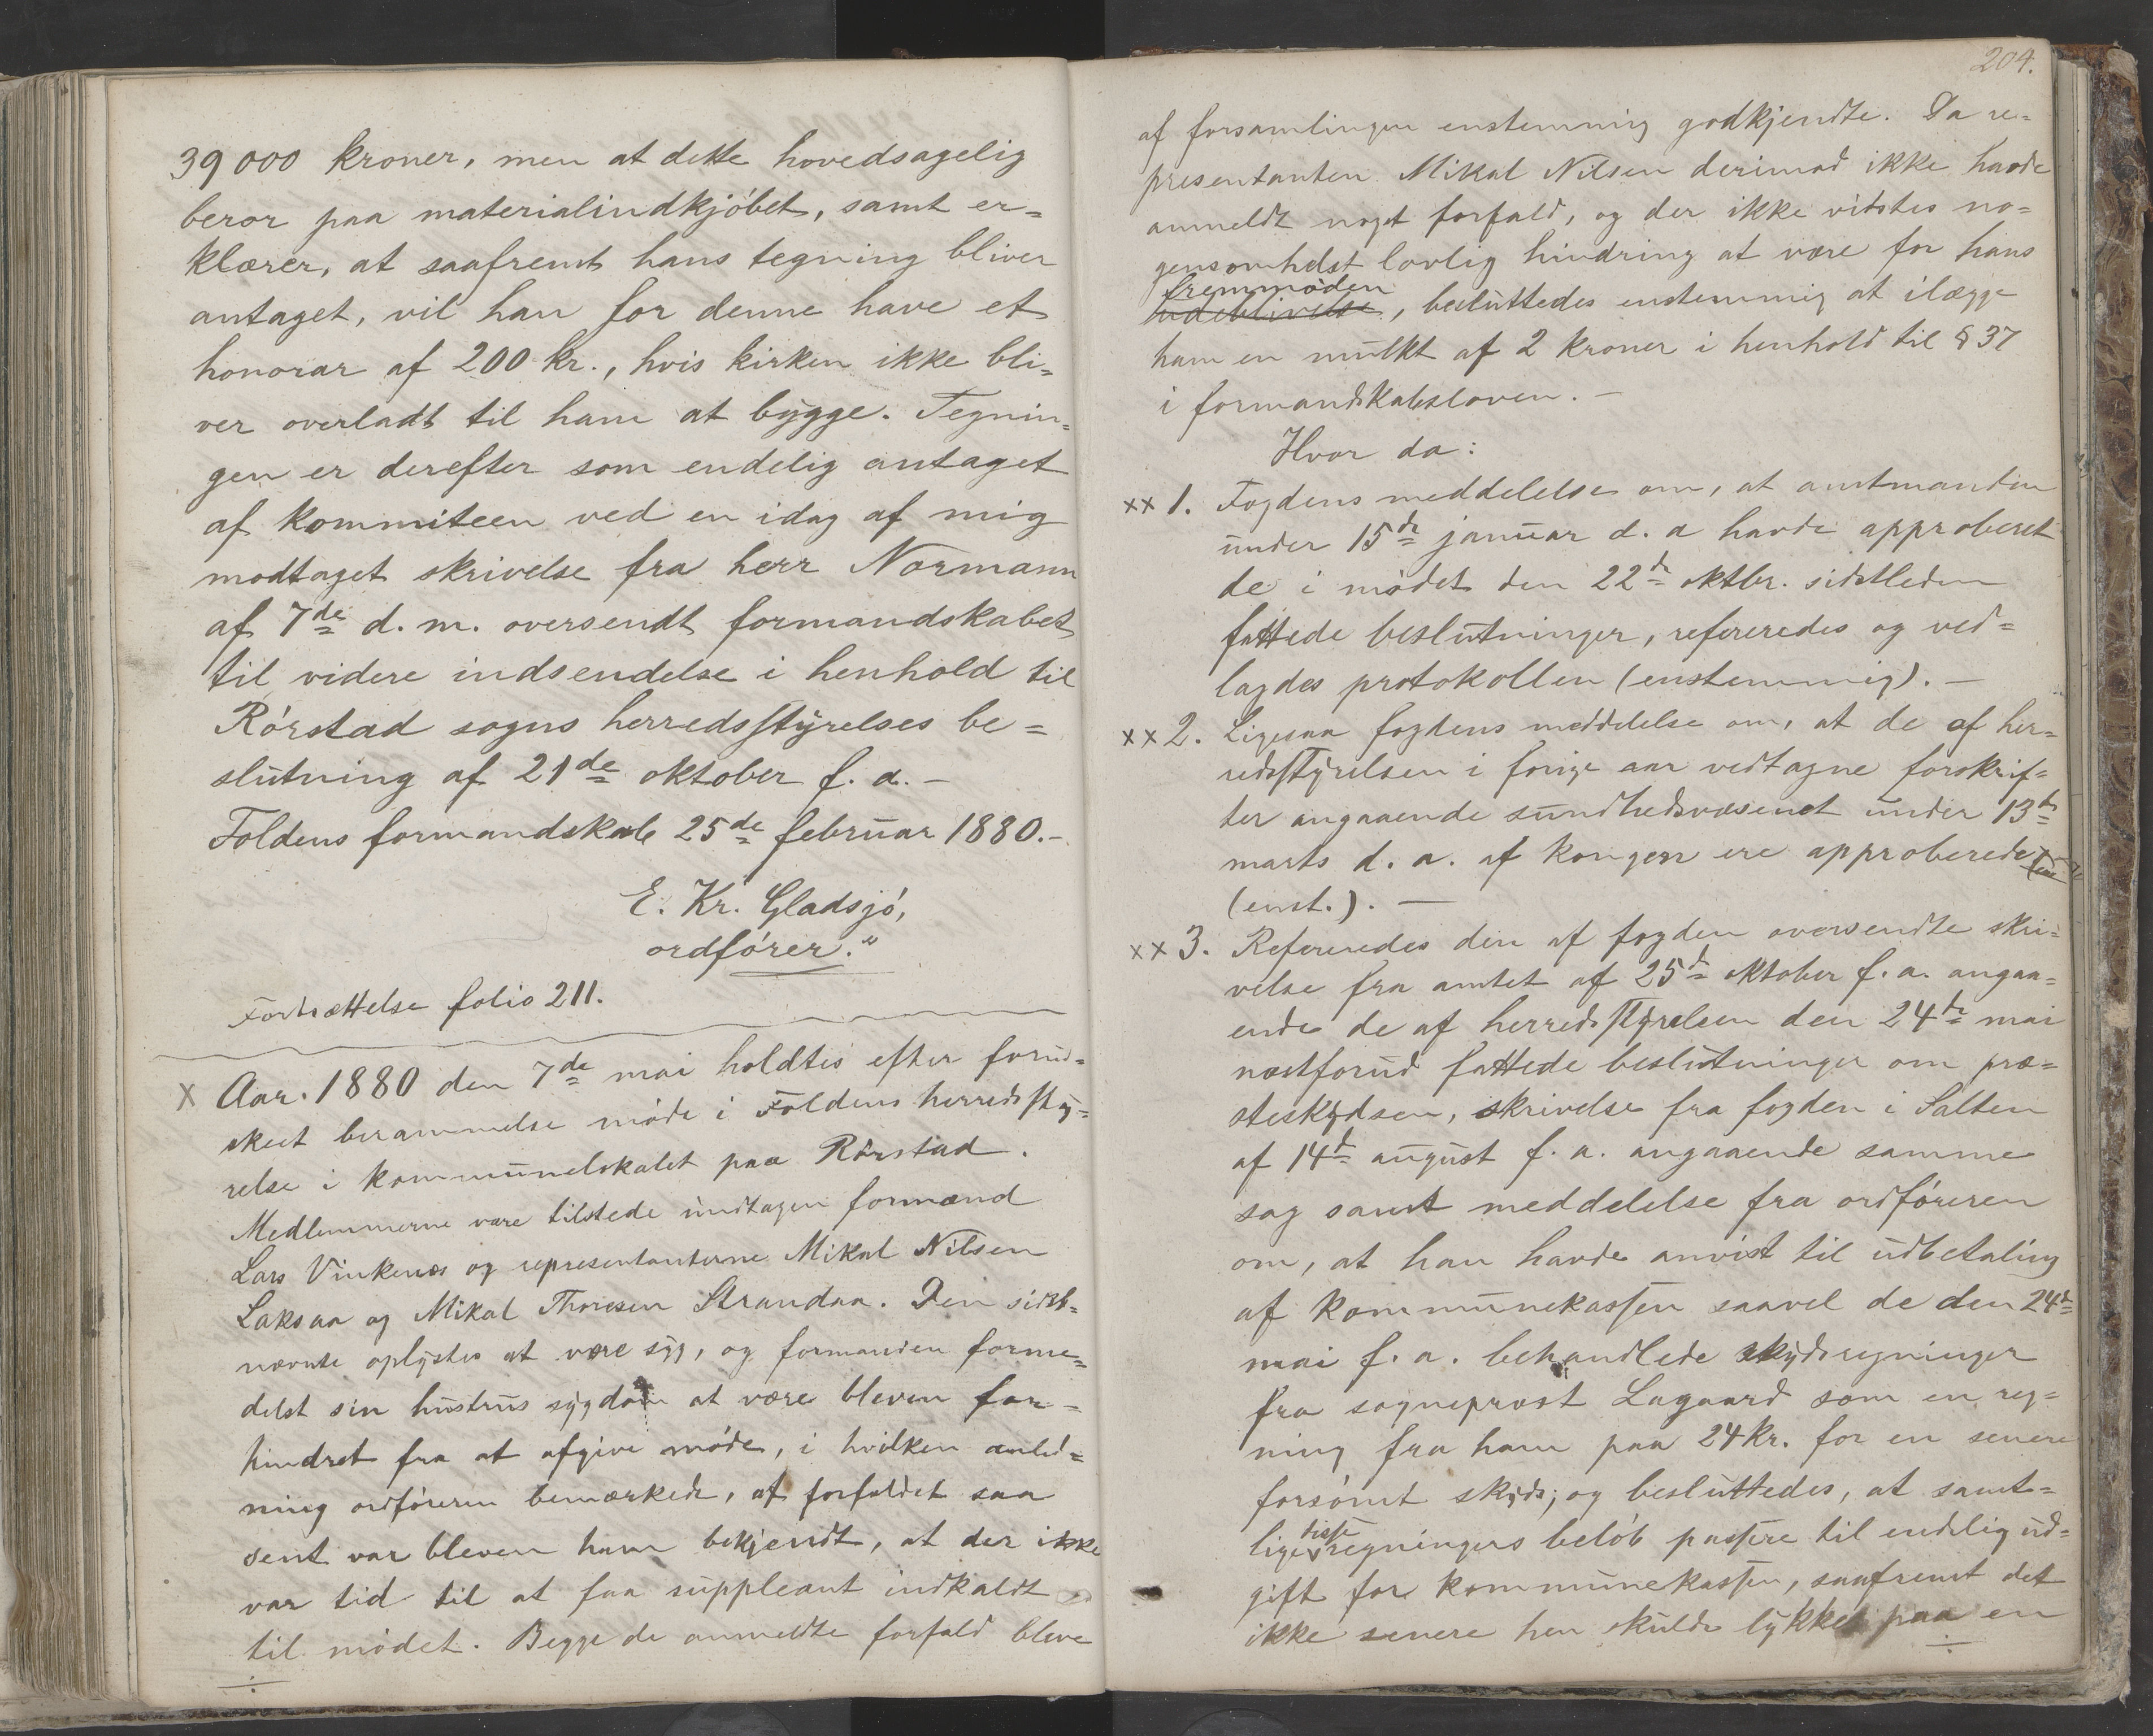 39000 kroner, men at dette hovedsagelig
beror paa materialindkjöbet, samt er=
klærer, at saafremt hans tegning bliver
antaget, vil han for denne have et
honorar af 200 kr., hvis kirken ikke bli=
ver overladt til ham at bygge. Tegnin=
gen er derefter som endelig antaget
af kommiteen ved en idag af mig
modtaget skrivelse fra herr Normann
af 7de d. m. oversendt formandskabet
til videre indsendelse i henhold til
Rörstad sogns herredsstyrelses be=
slutning af 21de oktober f. a. —
Foldens formandskab 25de februar 1880.—
E. Kr. Gladsjö,
ordförer."
Fortsættelse folio 211.
X Aar. 1880 den 7de mai holdtes efter forud=
skeet berammelse möde i Foldens herredssty=
relse i kommunelokalet paa Rörstad.
Medlemmerne vare tilstede undtagen formænd
Lars Vinkenes og representanterne Mikal Nilsen
Laksaa og Mikal Thoresen Strandaa. Den sidst=
nævnte oplystes at være syg, og formanden forme=
delst sin hustrus sygdom at være bleven for=
hindret fra at afgive möde, i hvilken anled=
ning ordföreren bemærkede, at forfaldet saa
sent var bleven ham bekjendt, at der ikke
var tid til at faa suppleant indkaldt
til mödet. Begge de anmeldte forfald bleve
÷
204.
af forsamlingen enstemmig godkjendte. Da re=
presentanten Mikal Nilsen derimod ikke havde
anmeldt noget forfald, og der ikke vidstes no=
gensomhelst lovlig hindring at være for hans
fremmöden
udeblivelse, besluttedes enstemmig at ilægge
ham en mulkt af 2 kroner i henhold til § 37
i formandskabsloven. —
Hvor da:
xx 1. Fogdens meddelelse om, at amtmanden
under 15de januar d. a havde approberet
de i mödet den 22de oktbr. sidstleden
fattede beslutninger, refereredes og ved=
lagdes protokollen (enstemmig). —
xx 2. Ligesaa fogdens meddelelse om, at de af her=
redsstyrelsen i forige aar vedtagne forskrif=
ter angaaende sundhedsvæsenet under 13de
marts d. a. af kongen ere approberede
(enst.). —
xx 3. Refereredes den af fogden oversendte skri=
velse fra amtet af 25de oktober f. a. angaa=
ende de af herredsstyrelsen den 24de mai
næstforud fattede beslutninger om præ=
steskydsen, skrivelse fra fogden i Salten
af 14de august f. a. angaaende samme
sag samt meddelelse fra ordföreren
om, at han havde anvist til udbetaling
af kommunekassen saavel de den 24de
mai f. a. behandlede skydsregninger
fra sogneprest Lagaard som en reg=
ning fra ham paa 24 kr. for en senere
forsömt skyds; og besluttedes, at samt=
disse
lige regningers belöb passere til endelig ud=
gift for kommunekassen, saafremt det
ikke senere hen skulde lykkes paa en
÷